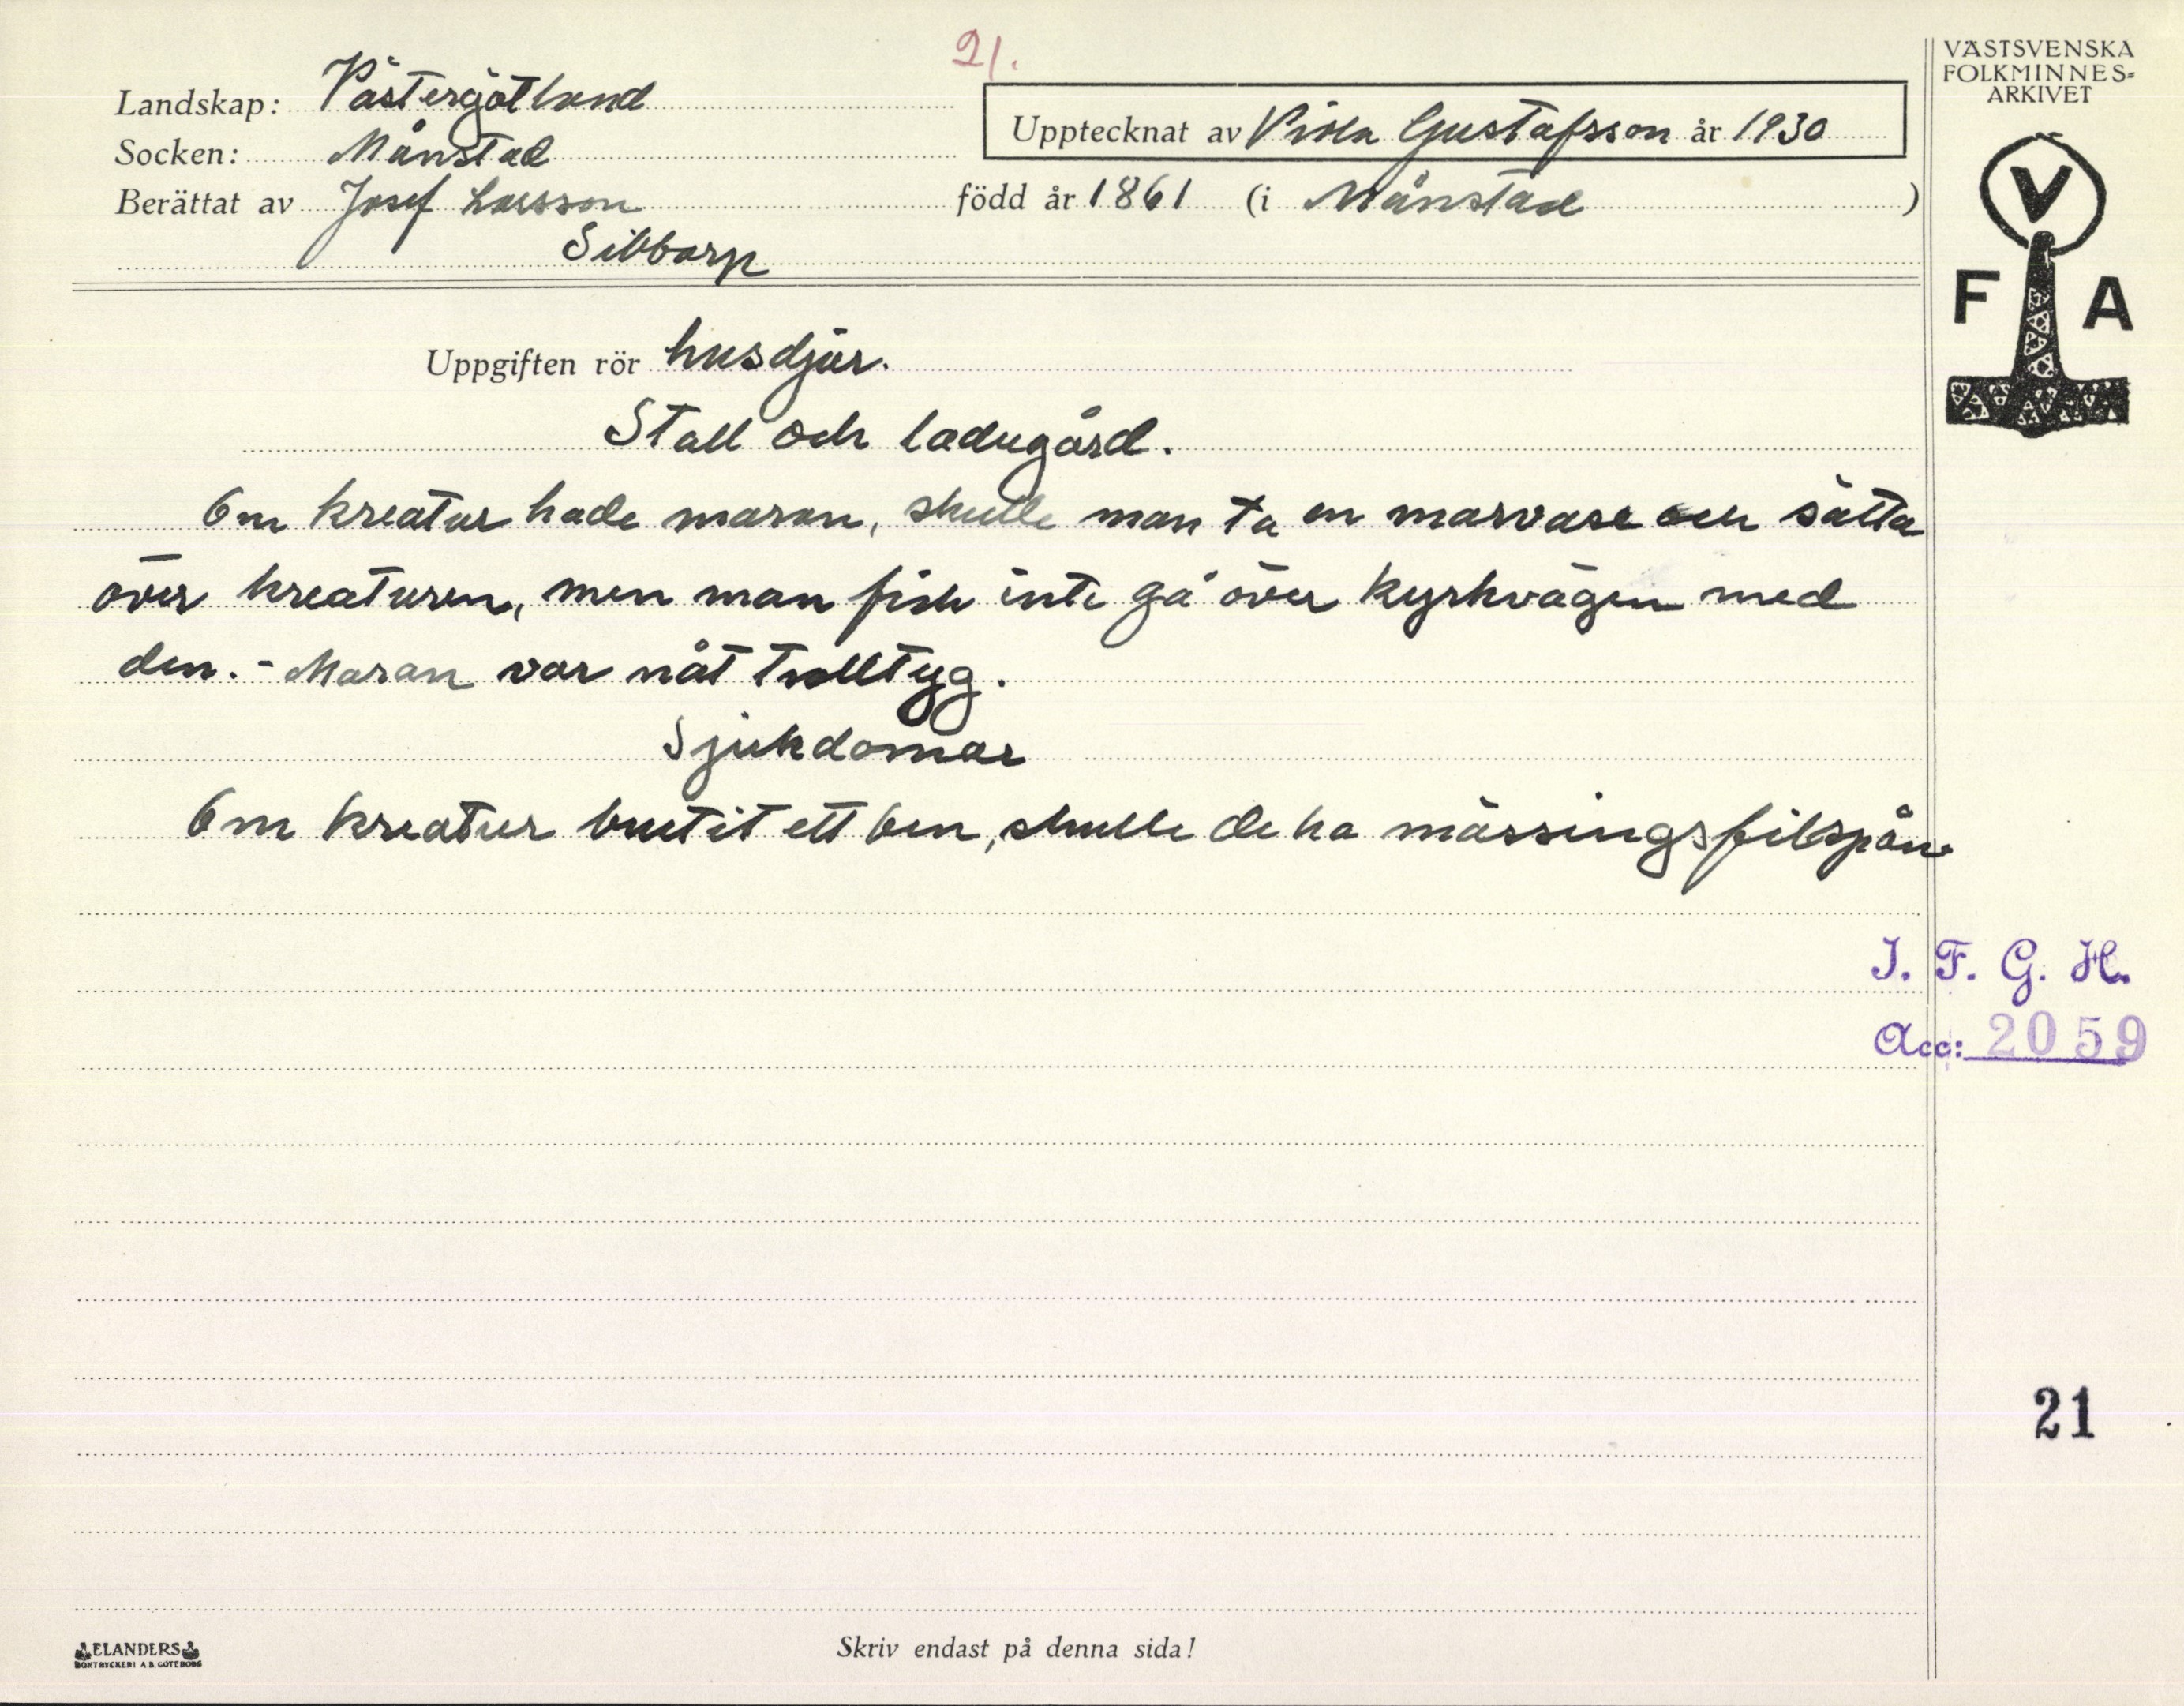 21.
VÄSTSVENSKA
FOLKMINNES=
ARKIVET
Landskap: Västergötland
Upptecknat av Viola Gustafsson år 1930
Socken: Månstad
Berättat av Josef Larsson född år 1861 (i Månstad)
Sibbarp
V
F A
Uppgiften rör husdjur.
Stall och ladugård.
Om kreatur hade maran, skulle man ta en marvase och sätta
över kreaturen, men man fick inte gå över kyrkvägen med
den. - Maran var nåt trolltyg.
Sjukdomar
Om kreatur brutit ett ben, skulle de ha mässingsfilspån.
I. F. G. H.
Acc: 2059
21
ELANDERS
BOKTRYCKERI A.B. GÖTEBORG
Skriv endast på denna sida!